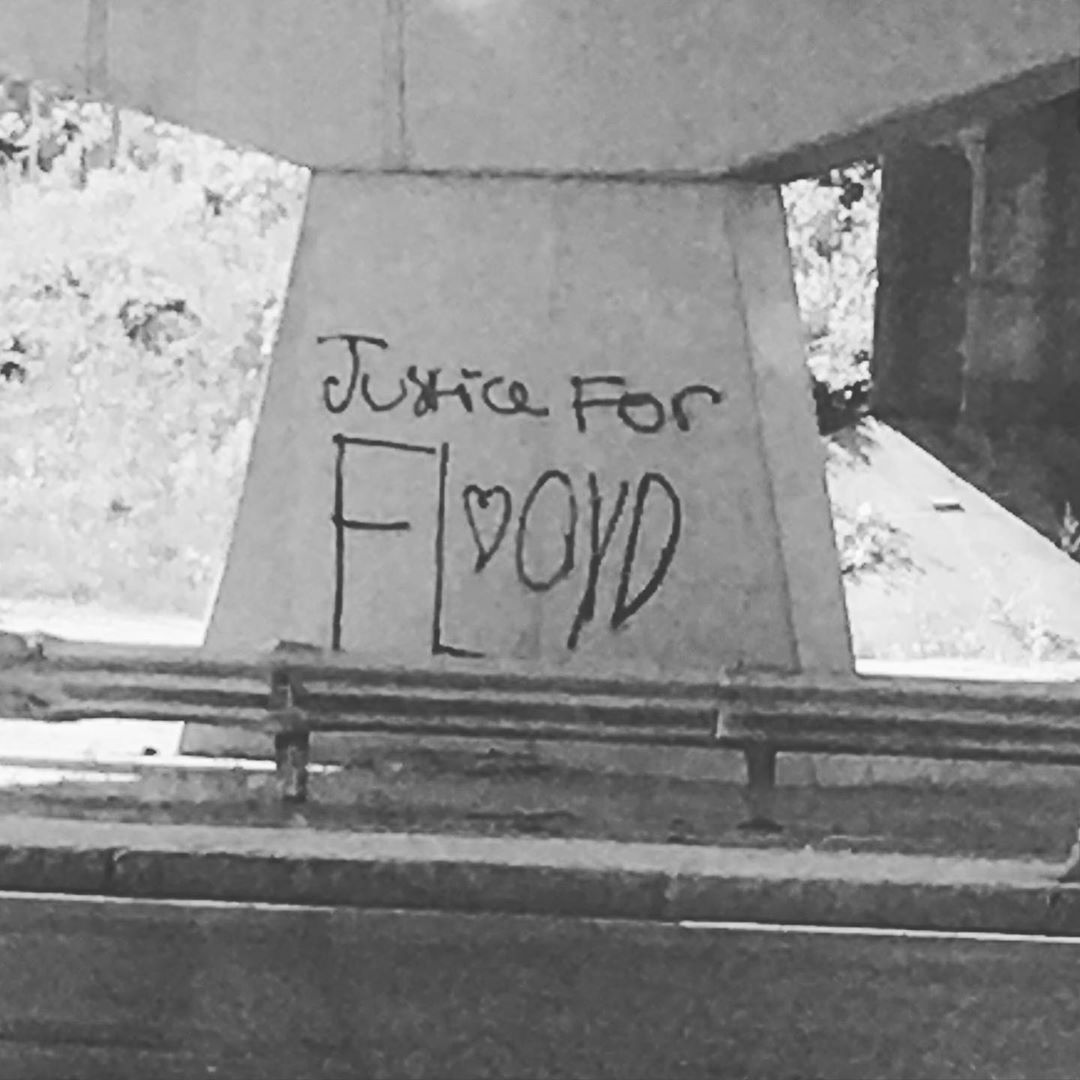 Justice For
FL♡OYD